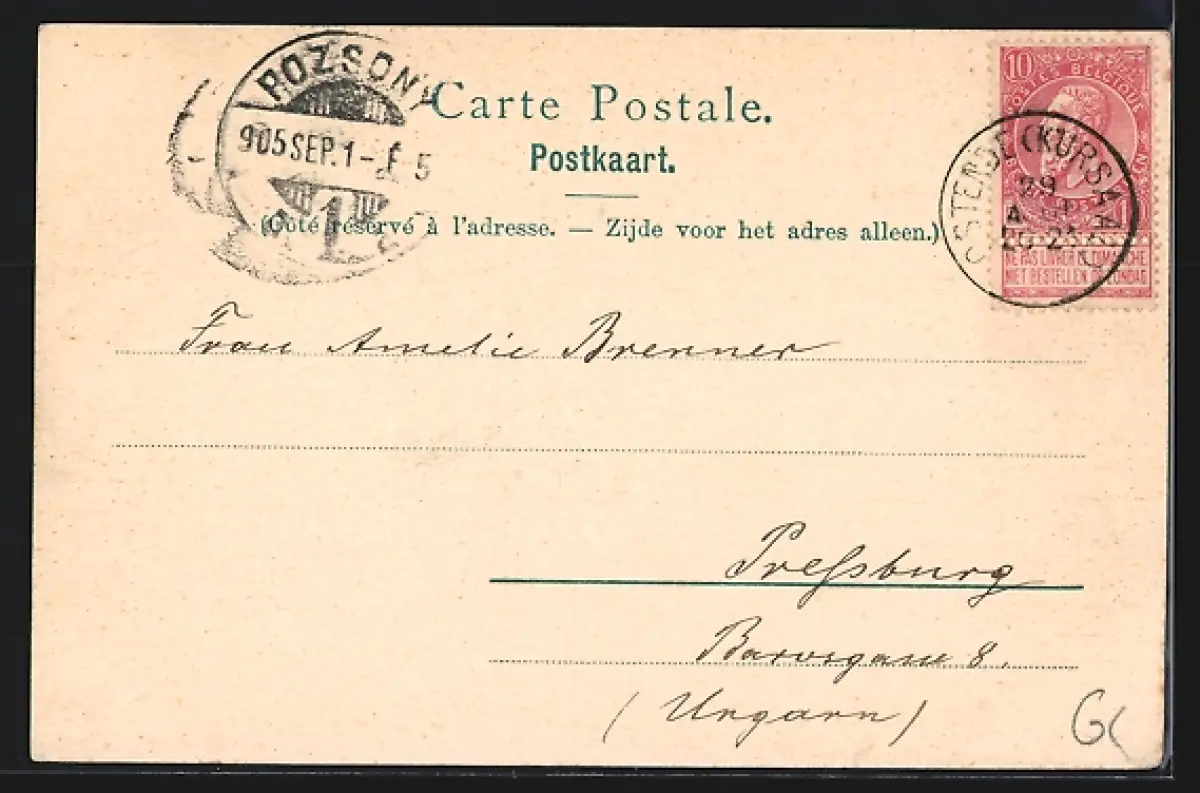 POZSONY
905 SEP. 1 - 5
Carte Postale.
Postkaart.
(Côté réservé à l'adresse. — Zijde voor het adres alleen.)
10
POSTES BELGIQUE
OSTENDE (KURSAAL)
29
NE PAS LIVRER LE DIMANCHE
NIET BESTELLEN OP ZONDAG
Frau Amelie Brenner
Preßburg
8.
(Ungarn)